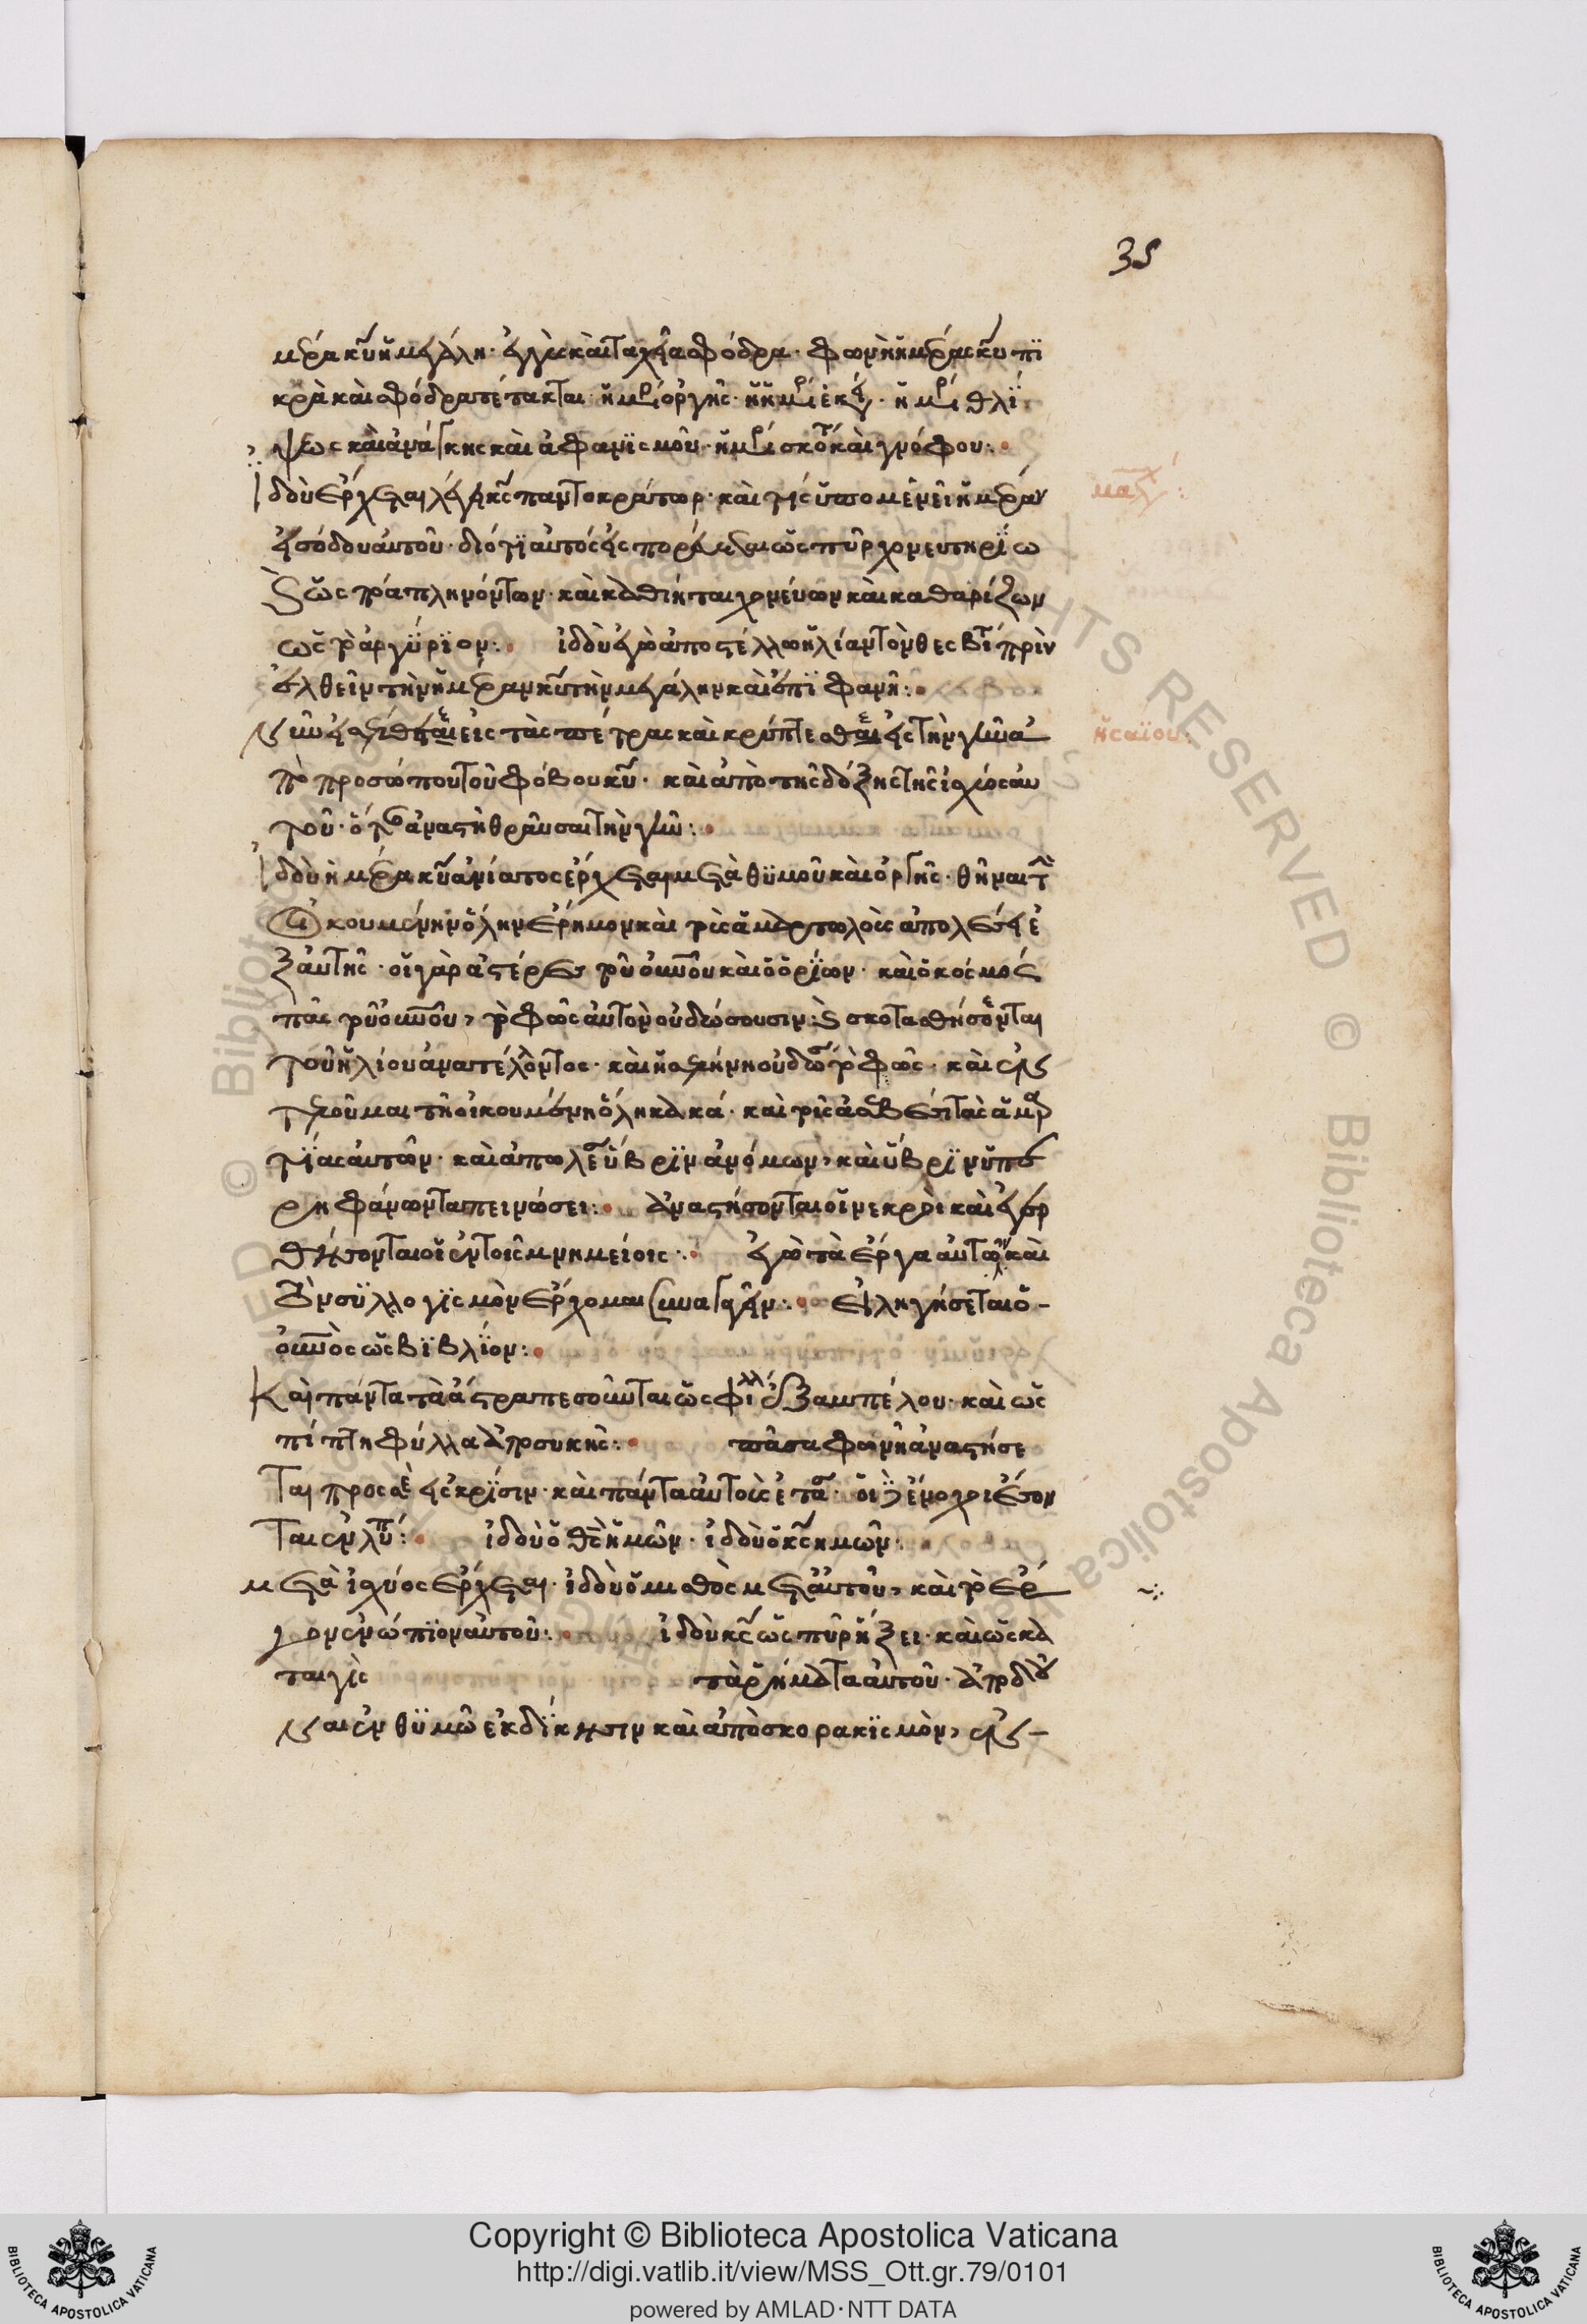 35
μέρα κυ ἡ μεγάλη· ἐγγὺς καὶ ταχεῖα σφόδρα· φωνὴ ἡμέρας κυ πϊ
κρὰ καὶ σφόδρα τέτακται· ἡμέρα ὀργῆς· ἡ ἡμέρα ἐκεί· ἡμέρα θλί
ψεως καὶ ἀνάγκης καὶ ἀφανϊσμοῦ· ἡμέρα σκότ καὶ γνόφου:
Ιδοὺ ἔρχεται λέγει κς παντοκράτωρ· καὶ τίς ὑπομενεῖ ἡμέραν
εἰσόδου αὐτοῦ· διότι αὐτὸς εἰσπορεύεται ὡς πῦρ χονευτηρίω
καὶ ὡς πόα πληνόντων· καὶ καθιεῖται χονεύων καὶ καθαρίζων
ὡς τὸ ἀργύρϊον: ἰδοὺ ἐγὼ ἀποστέλλω ἠλίαν τὸν θεσβίτ πρὶν
ἐλθεῖν τὴν ἡμέραν κυ τὴν μεγάλην καὶ ἐπϊφανῆ:
Νῦν εἰσέλθεται εἰς τὰς πέτρας καὶ κρύπτεσθαι εἰς τὴν γῆν ἀ
πὸ προσώπου τοῦ φόβου κυ· καὶ ἀπὸ τῆς δόξης τῆς ἰσχύος αὐ
τοῦ· ὅταν ἀναστῆ θραῦσαι τὴν γῆν:
Ιδοὺ ἡμέρα κυ ἀνίατος ἔρχεται μετὰ θϋμοῦ καὶ ὀργῆς· θῆναι τ
οἰκουμένην ὅλην ἔρημον καὶ τοὺς ἁμαρτωλοὺς ἀπολέσει ἐ
ξ αὐτῆς· οἱ γὰρ ἀστέρες τοῦ οὐνοῦ καὶ ὁ ὀρϊων· καὶ ὁ κόσμος
πᾶς τοῦ οὐνοῦ, τὸ φῶς αὐτὸν οὐ δώσουσιν: καὶ σκοτασθήσονται
τοῦ ἡλίου ἀνατέλοντος· καὶ ἡ σελήνη οὐ δώσει τὸ φῶς· καὶ ἐν
τελοῦμαι τῆ οἰκουμένη ὅλη κακά· καὶ τοῖς ἀσεβέσι τὰς ἁμαρ
τϊας αὐτῶν· καὶ ἀπωλέσω ὕβρϊν ἀνόμων, καὶ ὕβρϊν ὑπε
ρηφάνων ταπεινώσει: ἀναστήσονται οἱ νεκροὶ καὶ ἐγερ
θήσονται οἱ ἐν τοῖς μνημείοις: ἐγὼ τὰ ἔργα αὐτῶν καὶ
τὸν συλλογϊσμὸν ἔρχομαι συναγαγεῖν: Εἱληγήσεται ὁ
οὐνὸς ὡς βϊβλϊον:
Καὶ πάντα τὰ ἄστρα πεσοῦνται ὡς φύλλα ἐξ ἀμπέλου· καὶ ὡς
πίπτη φύλλα ἀπὸ συκῆς: πᾶσα φωνὴ ἀναστήσε
ται προς σὲ εἰς κρϊσιν· καὶ πάντα αὐτοὺς· οἱ δὲ ἔνοχοι ἔσον
ται ἐν λύπ: ἰδοὺ ὁ θς ἡμῶν· ἰδοὺ ὁ κς ἡμῶν:
μετὰ ἰσχύος ἔρχεται· ἰδοὺ ὁ μισθὸς μετ αὐτοῦ, καὶ τὸ ἔρ
γον ἐνώπϊον αὐτοῦ: ἰδοὺ κς ὡς πῦρ ἥξει· καὶ ὡς κα
ταιγὶς τὰ ἅρματα αὐτοῦ· ἀποδοῦ
ναι ἐν θϋμῶ ἐκδϊκησιν καὶ ἀποσκορακϊσμὸν, ἐν
μαλαχ:
ἠσαΐου:
Copyright © Biblioteca Apostolica Vaticana
http://digi.vatlib.it/view/MSS_Ott.gr.79/0101
powered by AMLAD·NTT DATA